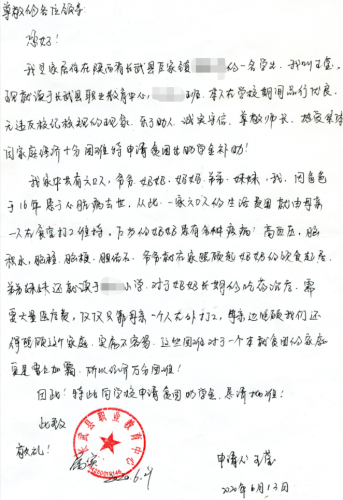 尊敬的各位领导:
您好!
我是家居住在陕西省长武县巨家镇 的一名学生.我叫王萱.
现就读于长武县职业教育中心, 班.本人在学校期间品行优良.
无违反校纪校规的现象.乐于助人.诚实守信.尊敬师长.
因家庭经济十分困难特申请国家助学金补助!
我家中共有六口人,爷爷.奶奶.妈妈.弟弟.妹妹.我.因爸爸
于16年患了心脏病去世.从此一家六口人的生活费用就由母亲
一人在食堂打工维持.万岁的奶奶患有各种疾病:高血压.脑
积水.脑梗.胆结石.爷爷就在家照顾起奶奶的饮食起居.
弟弟妹妹还就读于 小学.对于奶奶长期的吃药治疗.需
要大量医疗费,仅仅只靠母亲一个人在外打工,母亲还照顾我们还
得照顾这个家庭.实属不容易.这些困难对于一个本就贫困的家庭
更是雪上加霜.所以经济万分困难!
因此!特此向学校申请贫困助学金.恳请批准!
此致
敬礼!
长武县职业教育中心
属实
2020.6.21
申请人:王萱
2020年6月13日